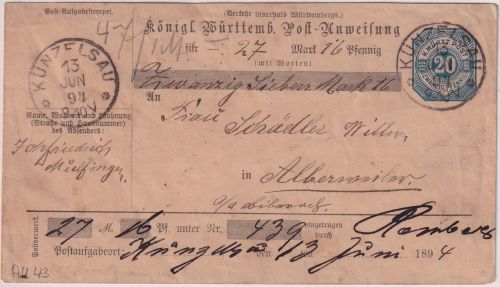 Post-Aufgabestempel.
(Verkehr innerhalb Württembergs.)
47
Königl. Württemb. Post-Anweisung
für 27 Mark 16 Pfennig
(mit Worten)
Zwanzig Sieben Mark 16
KÜNZELSAU
13
JUN
94
KÜNZELSAU
K. WÜRTT. POST
20
An
Frau
Schädler Witwe
in Alberweiler
Name, Wohnort und Wohnung
(Straße und Hausnummer)
des Absenders:
Mulfingen
Postvermerk.
27 M. 16 Pf. unter Nr. 439 eingetragen durch
Postaufgabeort: Küngelsau den 13 Juni 1894
AU 43